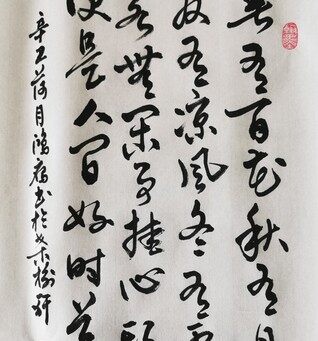 春有百花秋有月
夏有凉风冬有雪
若無闲事挂心头
便是人间好时节
辛丑荷月鸿
书於
轩